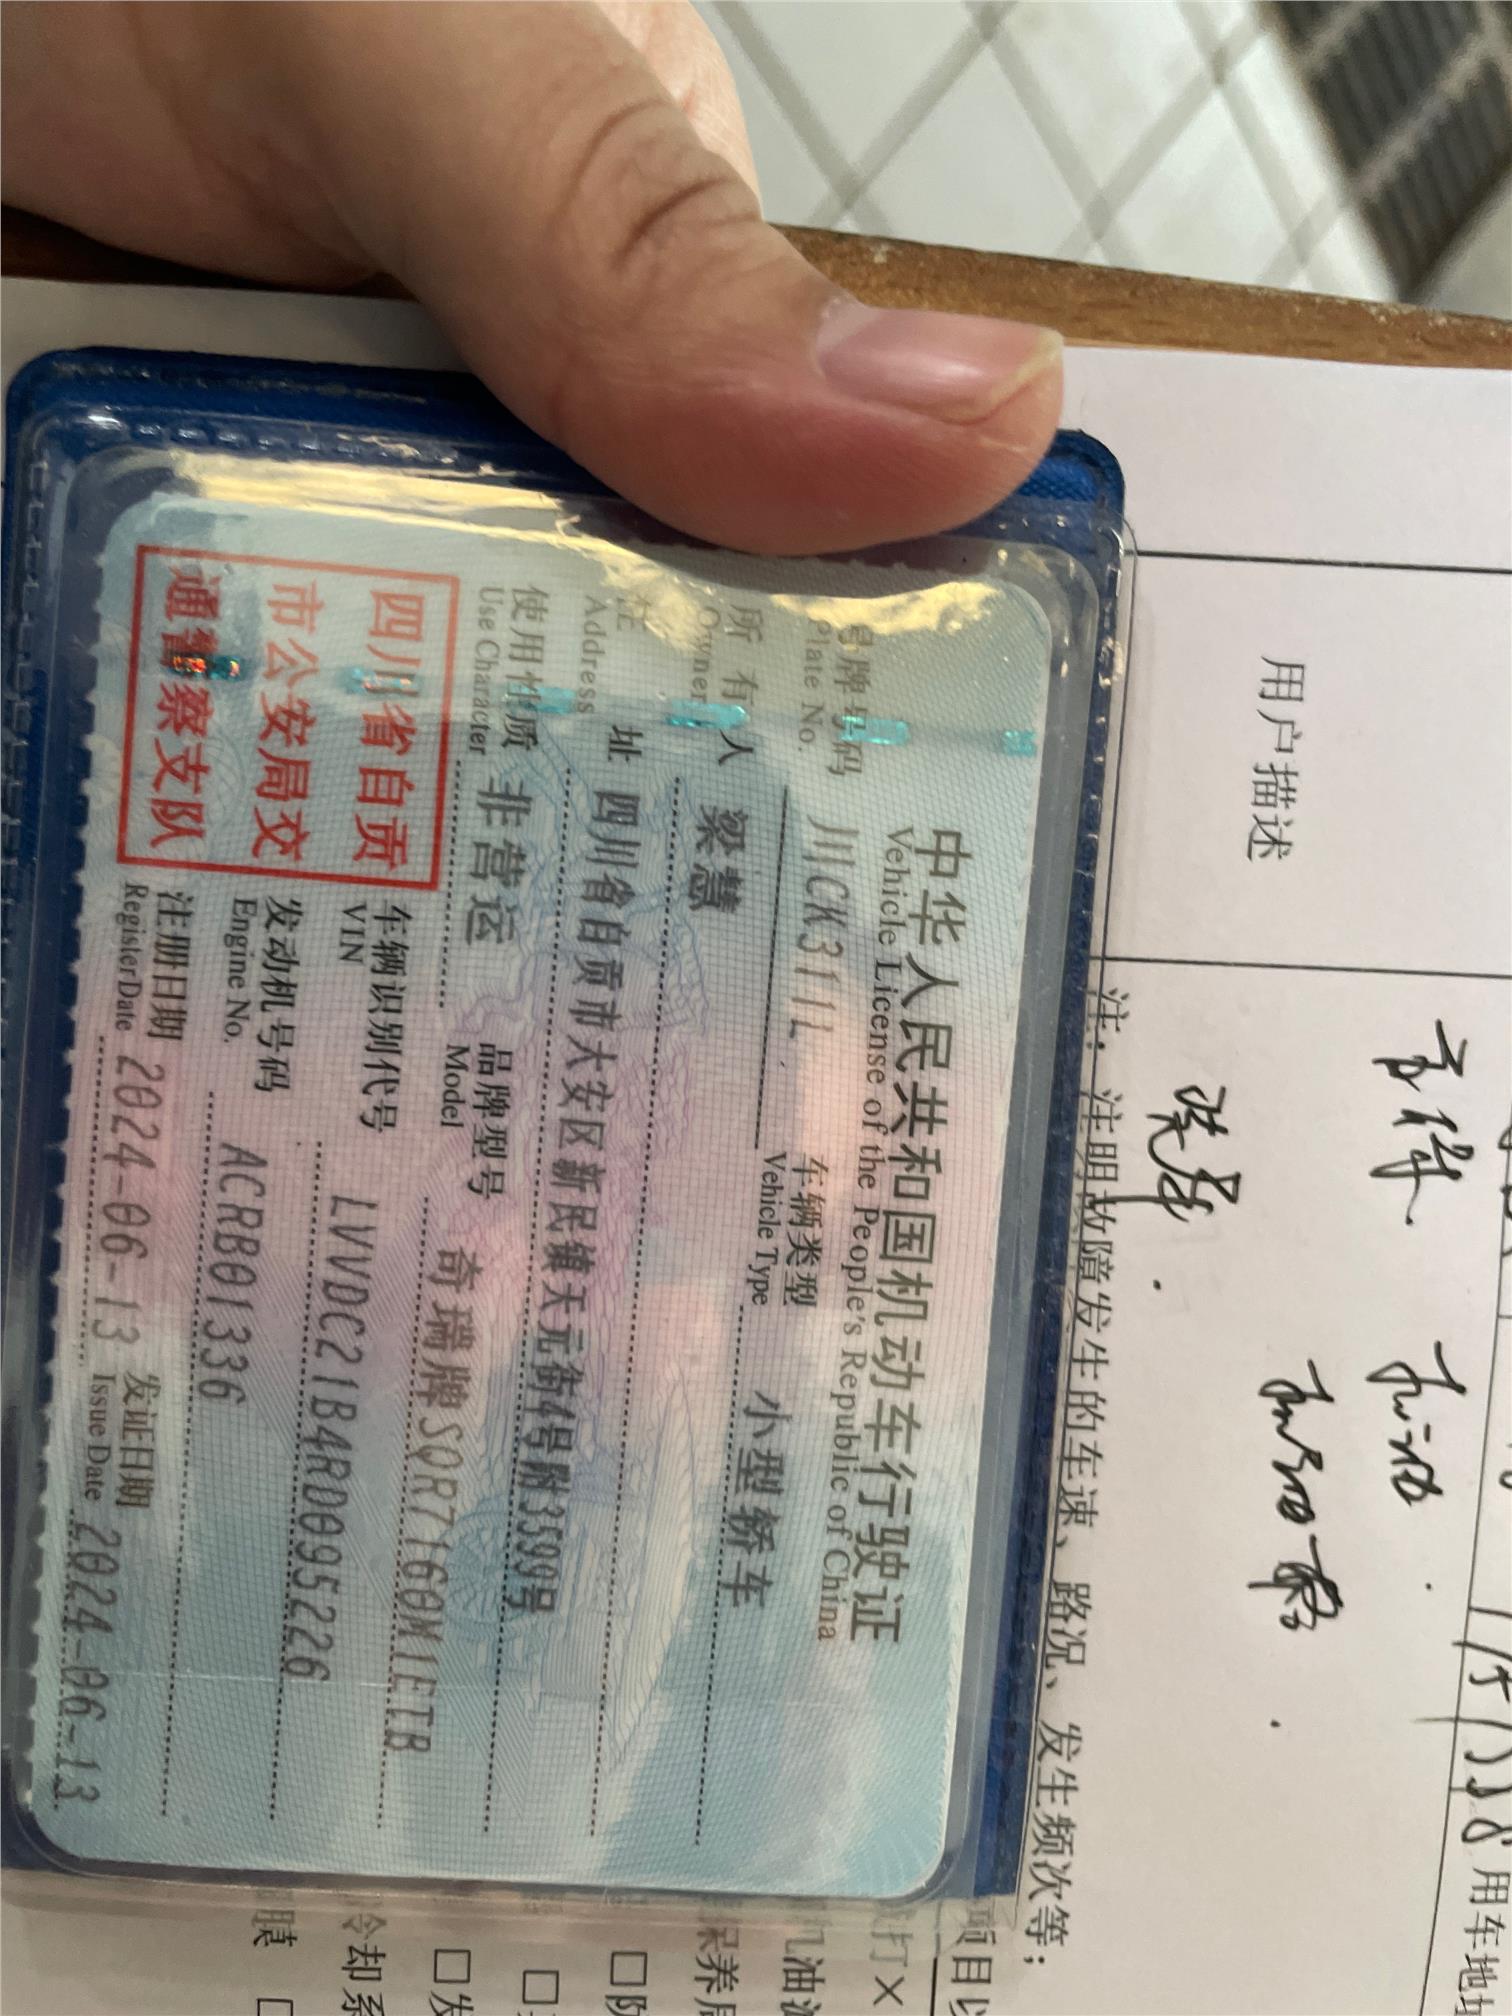 中华人民共和国机动车行驶证
Vehicle License of the People's Republic of China
号牌号码 川CK311L 车辆类型 小型轿车
Plate No. Vehicle Type
所有人 梁慧
Owner
住址 四川省自贡市大安区新民镇天元街4号附3599号
Address
使用性质 非营运 品牌型号 奇瑞牌SQR7160M1ETB
Use Character Model
四川省自贡
市公安局交
通警察支队
车辆识别代号 LVVDC21B4RD095226
VIN
发动机号码 ACRB01336
Engine No.
注册日期 2024-06-13 发证日期 2024-06-13
Register Date Issue Date
用户描述
注：注明故障发生的车速、路况、发生频次等；
用车地
项目以
打×
机油
保养
冷却系